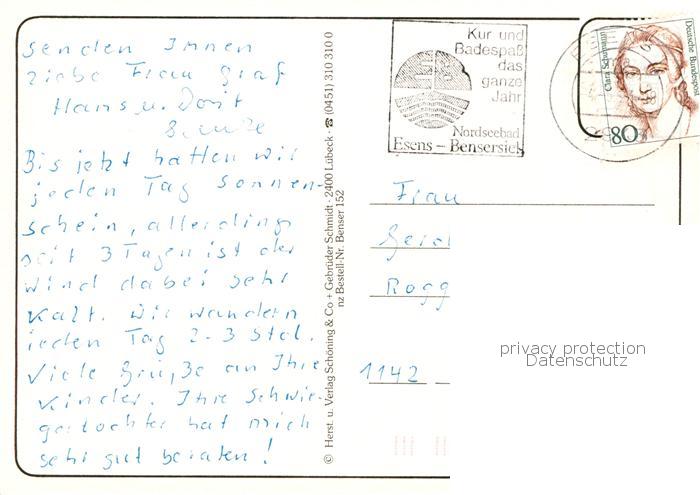 senden Ihnen
liebe Frau Graf
Hans u. Dorit
Bis jetzt hatten wir
jeden Tag Sonnen-
schein, allerdings
seit 3 Tagen ist der
Wind dabei sehr
kalt. Wir wandern
jeden Tag 2-3 Std.
Viele Grüße an Ihre
Kinder. Ihre Schwie-
gertochter hat mich
sehr gut beraten!
© Herst. u. Verlag Schöning & Co + Gebrüder Schmidt · 2400 Lübeck · ☎ (0451) 310 310 0
nz Bestell-Nr. Benser 152
Kur und
Badespaß
das
ganze
Jahr
Nordseebad
Esens – Bensersiel
Clara Schumann
Deutsche Bundespost
80
Frau
Rogg
1142
privacy protection
Datenschutz